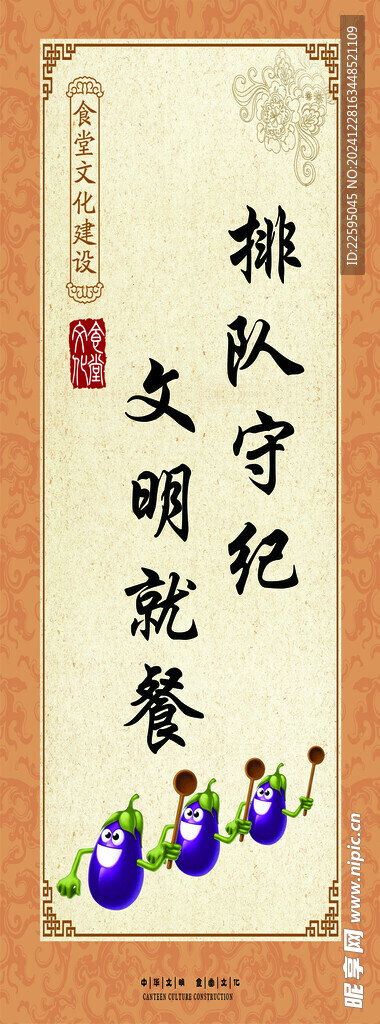 食堂文化建设
食堂文化
排队守纪
文明就餐
中华文明 食堂文化
CANTEEN CULTURE CONSTRUCTION
ID:22595045 NO:20241228163448521109
昵享网 www.nipic.cn